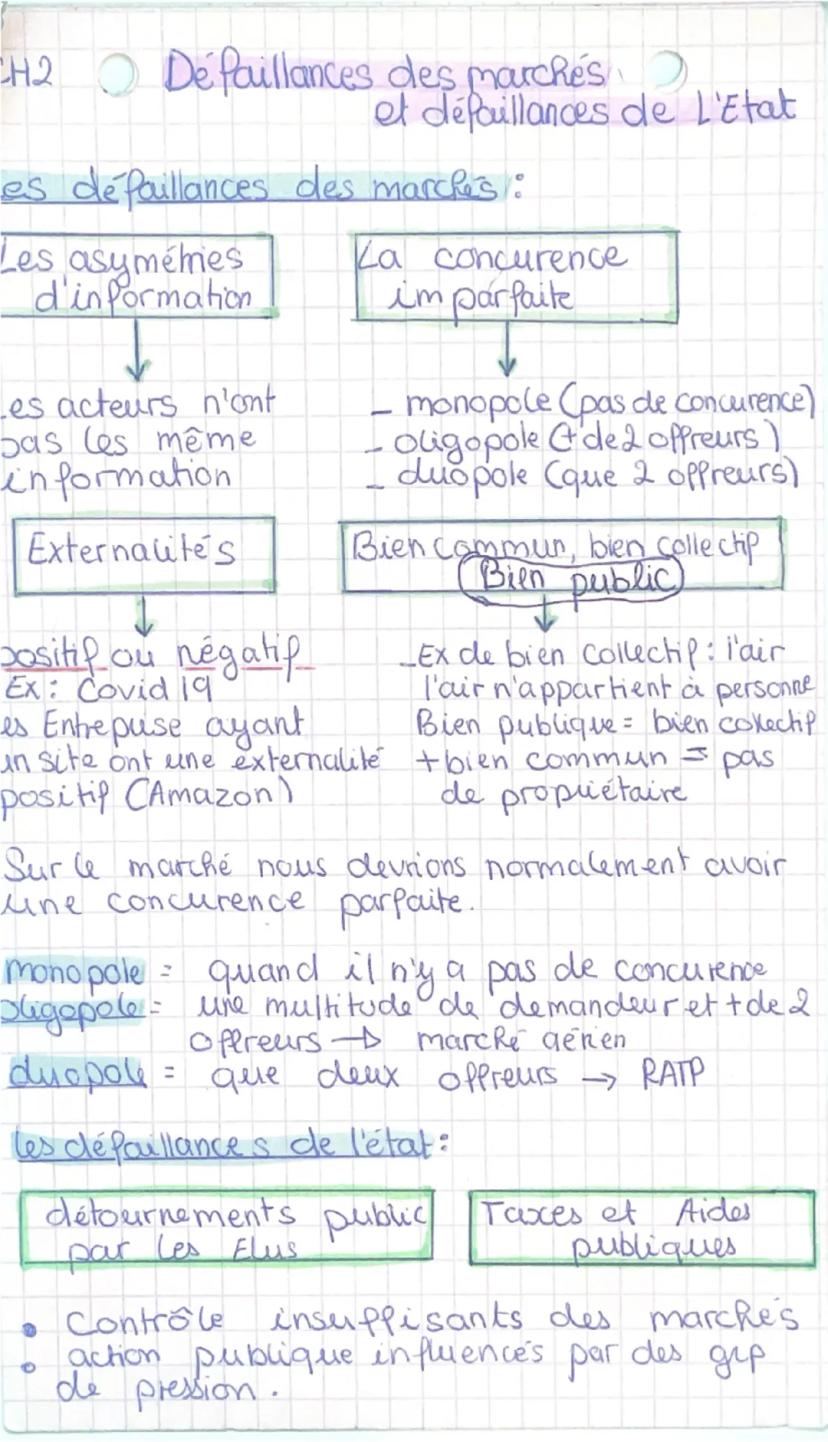 CH2 Défaillances des marchés
et défaillances de L'Etat
es défaillances des marchés :
Les asymétries
d'information
La concurence
imparfaite
Les acteurs n'ont
pas les même
information
- monopole (pas de concurence)
- oligopole (+ de 2 offreurs)
- duopole (que 2 offreurs)
Externalités
Bien commun, bien collectif
Bien public
positif ou négatif
Ex : Covid 19
es Entrepise ayant
un site ont une externalité
positif (Amazon)
- Ex de bien collectif : l'air
l'air n'appartient à personne
Bien publique = bien collectif
+ bien commun = pas
de propriétaire
Sur le marché nous devrions normalement avoir
une concurence parfaite.
monopole = quand il n'y a pas de concurence
oligopole = une multitude de demandeur et + de 2
offreurs → marché aérien
duopole = que deux offreurs → RATP
les défaillances de l'état :
détournements public
par les Elus
Taxes et Aides
publiques
• Contrôle insuffisants des marchés
• action publique influencés par des grp
de pression.